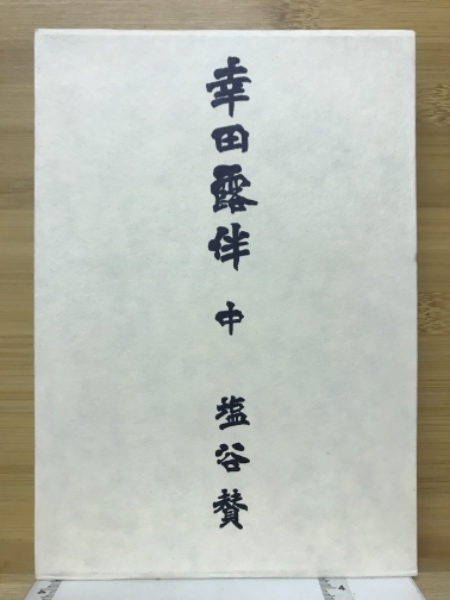 幸田露伴 中 塩谷賛